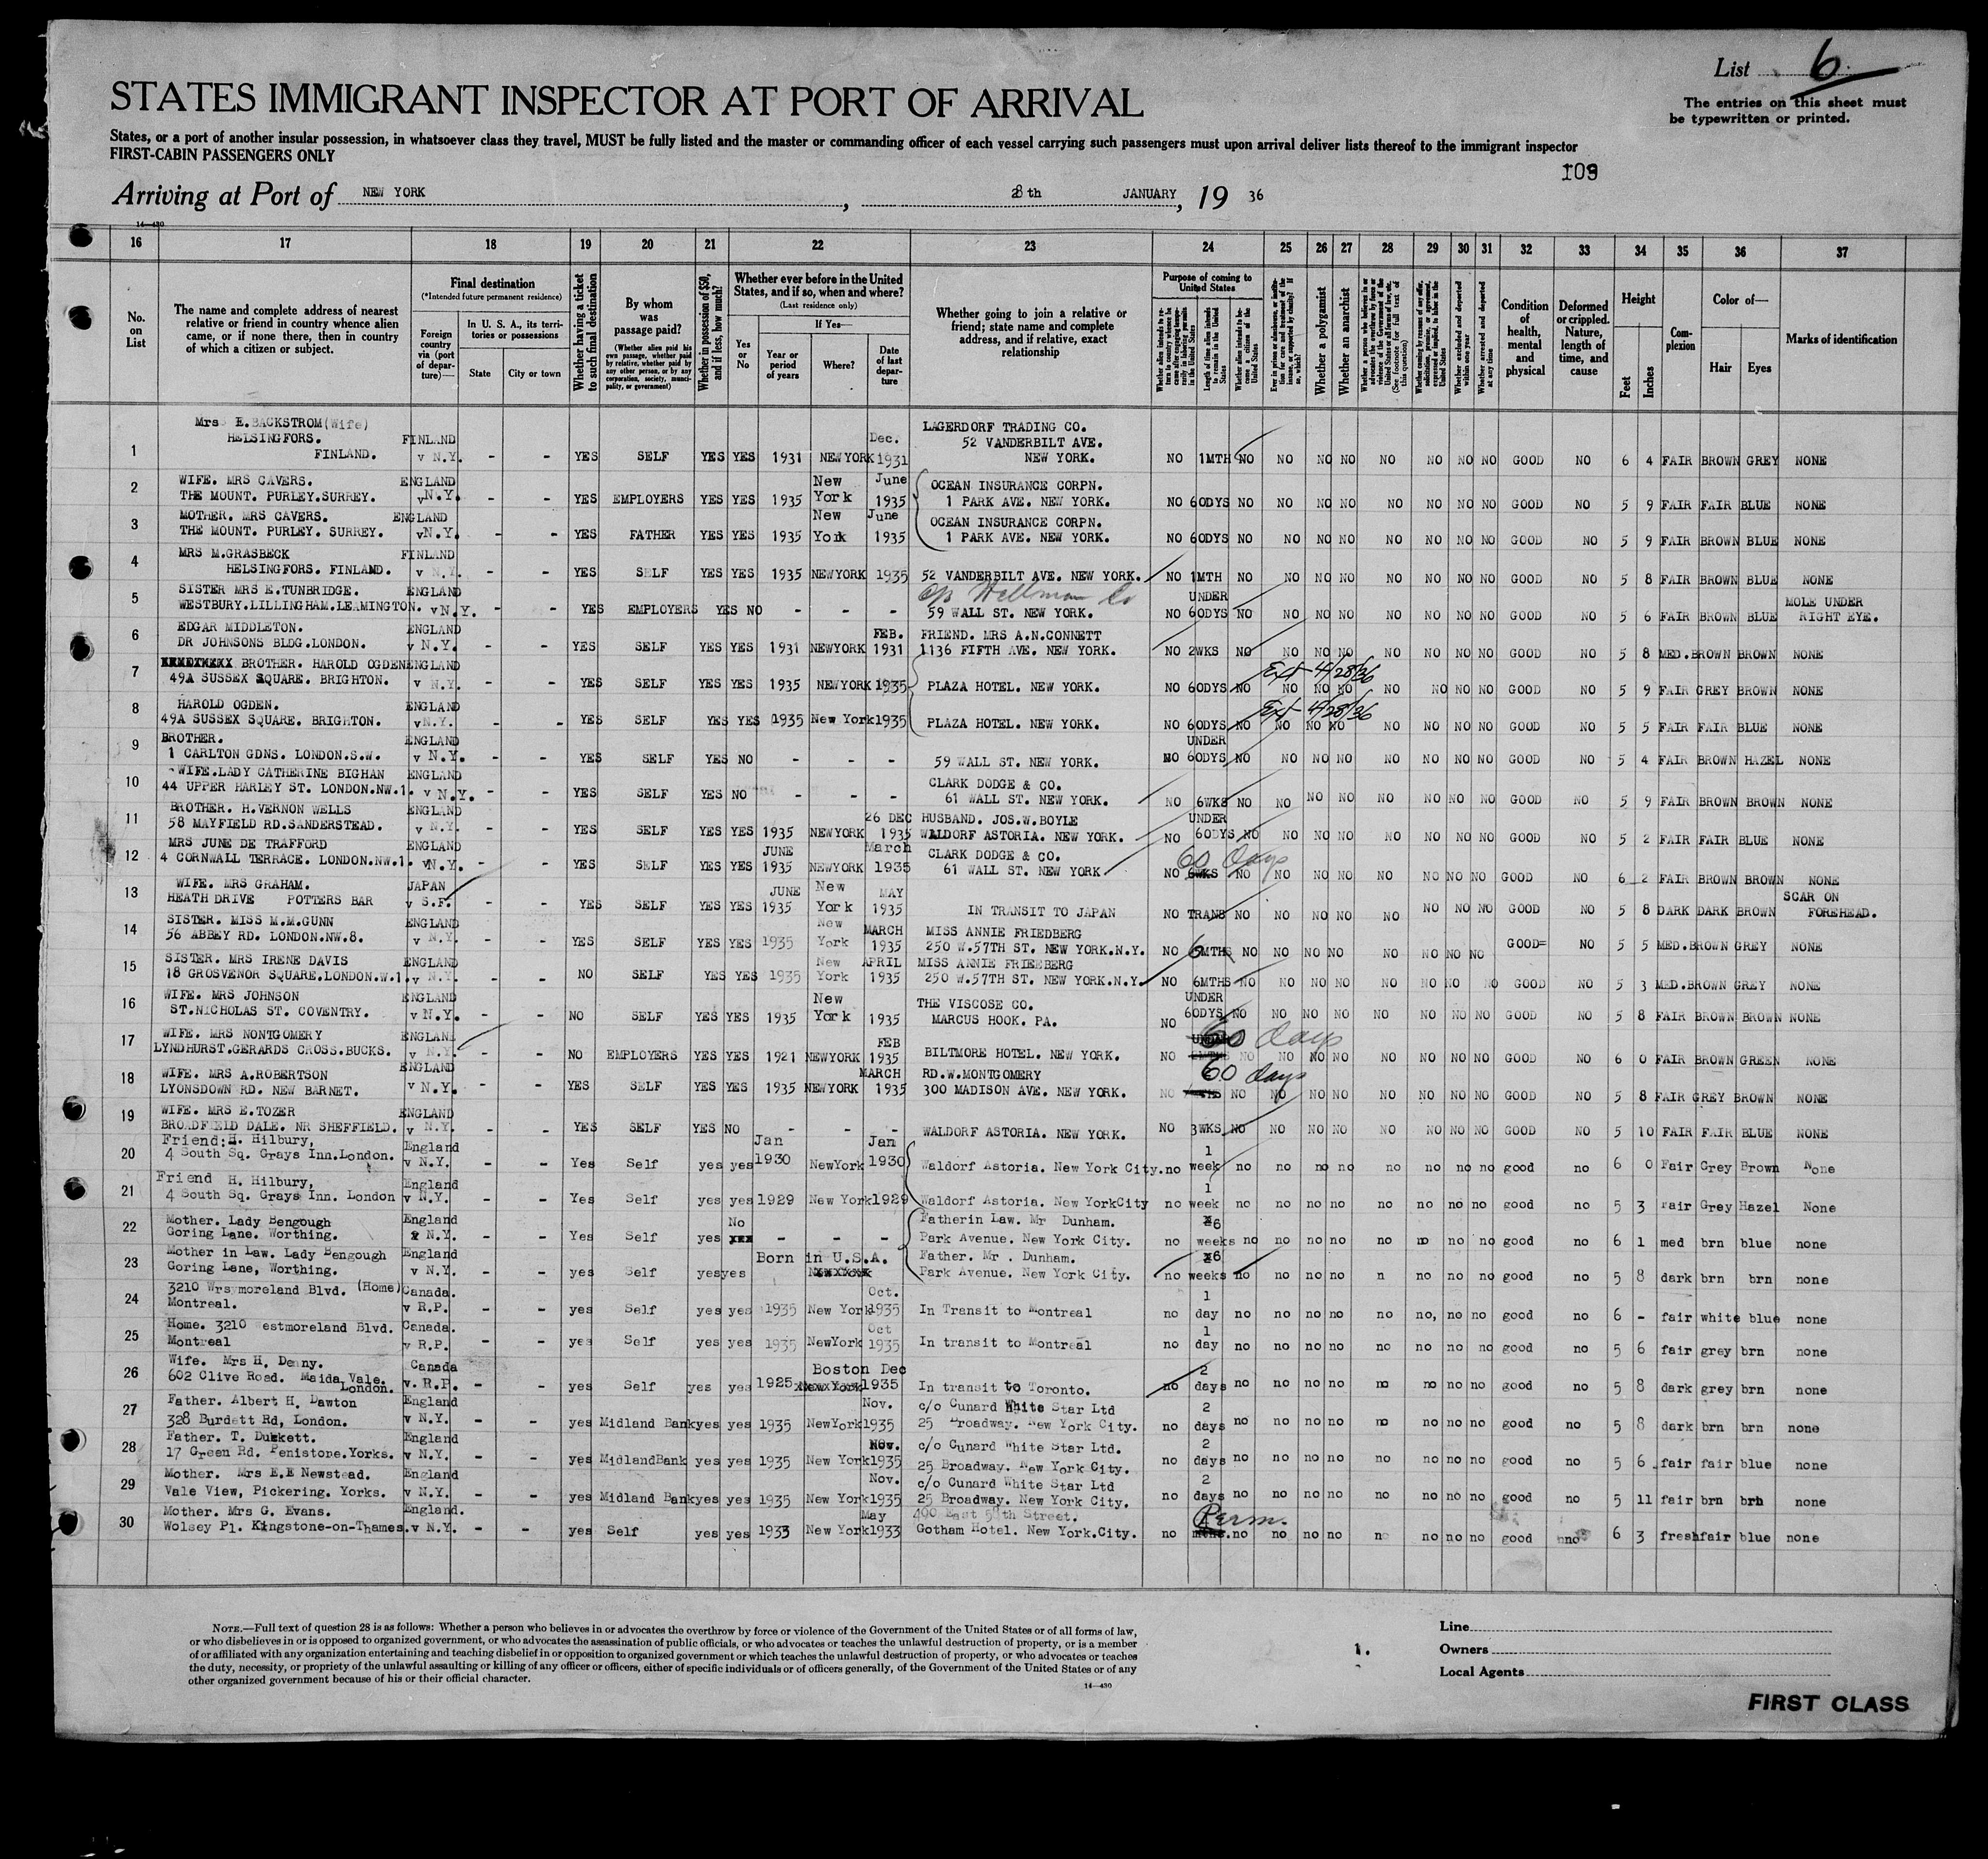 List 6
The entries on this sheet must
be typewritten or printed.
STATES IMMIGRANT INSPECTOR AT PORT OF ARRIVAL
States, or a port of another insular possession, in whatsoever class they travel, MUST be fully listed and the master or commanding officer of each vessel carrying such passengers must upon arrival deliver lists thereof to the immigrant inspector
FIRST-CABIN PASSENGERS ONLY
109
Arriving at Port of NEW YORK, 28th JANUARY, 19 36
14-430
16 17 18 19 20 21 22 23 24 25 26 27 28 29 30 31 32 33 34 35 36 37
No. on List
The name and complete address of nearest relative or friend in country whence alien came, or if none there, then in country of which a citizen or subject.
Final destination
(*Intended future permanent residence)
Foreign country via (port of departure)—
In U. S. A., its territories or possessions
State
City or town
Whether having a ticket to such final destination
By whom was passage paid?
(Whether alien paid his own passage, whether paid by relative, whether paid by any other person, or by any corporation, society, municipality, or government)
Whether in possession of $50, and if less, how much?
Whether ever before in the United States, and if so, when and where?
(Last residence only)
Yes or No
If Yes—
Year or period of years
Where?
Date of last departure
Whether going to join a relative or friend; state name and complete address, and if relative, exact relationship
Purpose of coming to United States
Length of time alien intends to remain in the United States
Whether alien intends to become a citizen of the United States
Whether a polygamist
Whether an anarchist
(See footnote for full text of this question)
Whether excluded and deported within one year
Whether arrested and deported at any time
Condition of health, mental and physical
Deformed or crippled. Nature, length of time, and cause
Height
Feet
Inches
Complexion
Color of—
Hair
Eyes
Marks of identification
1 Mrs E.BACKSTROM(Wife) HELSINGFORS. FINLAND. FINLAND v N.Y. - - YES SELF YES YES 1931 NEWYORK Dec. 1931 LAGERDORF TRADING CO. 52 VANDERBILT AVE. NEW YORK. NO 1MTH NO NO NO NO NO NO NO NO GOOD NO 6 4 FAIR BROWN GREY NONE
2 WIFE. MRS CAVERS. THE MOUNT. PURLEY.SURREY. ENGLAND vN.Y. - - YES EMPLOYERS YES YES 1935 New York June 1935 OCEAN INSURANCE CORPN. 1 PARK AVE. NEW YORK. NO 60DYS NO NO NO NO NO NO NO NO GOOD NO 5 9 FAIR FAIR BLUE NONE
3 MOTHER. MRS CAVERS. THE MOUNT. PURLEY. SURREY. ENGLAND vN.Y. - - YES FATHER YES YES 1935 New York June 1935 OCEAN INSURANCE CORPN. 1 PARK AVE. NEW YORK. NO 60DYS NO NO NO NO NO NO NO NO GOOD NO 5 9 FAIR BROWN BLUE NONE
4 MRS M.GRASBECK HELSINGFORS. FINLAND. FINLAND v N.Y. - - YES SELF YES YES 1935 NEWYORK 1935 52 VANDERBILT AVE. NEW YORK. NO 1MTH NO NO NO NO NO NO NO NO GOOD NO 5 8 FAIR BROWN BLUE NONE
5 SISTER MRS E.TUNBRIDGE. WESTBURY.LILLINGHAM.LEAMINGTON. ENGLAND vN.Y. - - YES EMPLOYERS YES NO - - - 59 WALL ST. NEW YORK. NO UNDER 60DYS NO NO NO NO NO NO NO NO GOOD NO 5 6 FAIR BROWN BLUE MOLE UNDER RIGHT EYE.
6 EDGAR MIDDLETON. DR JOHNSONS BLDG.LONDON. ENGLAND v N.Y. - - YES SELF YES YES 1931 NEWYORK FEB. 1931 FRIEND. MRS A.N.CONNETT 1136 FIFTH AVE. NEW YORK. NO 2WKS NO NO NO NO NO NO NO NO GOOD NO 5 8 MED.BROWN BROWN NONE
7 BROTHER. HAROLD OGDEN 49A SUSSEX SQUARE. BRIGHTON. ENGLAND v N.Y. - - YES SELF YES YES 1935 NEWYORK 1935 PLAZA HOTEL. NEW YORK. NO 60DYS NO Ext 4/28/36 NO NO NO NO NO NO NO GOOD NO 5 9 FAIR GREY BROWN NONE
8 HAROLD OGDEN. 49A SUSSEX SQUARE. BRIGHTON. ENGLAND vN.Y. - - YES SELF YES YES 1935 New York 1935 PLAZA HOTEL. NEW YORK. NO 60DYS NO Ext 4/28/36 NO NO NO NO NO NO NO GOOD NO 5 5 FAIR FAIR BLUE NONE
9 BROTHER. 1 CARLTON GDNS. LONDON.S.W. ENGLAND v N.Y. - - YES SELF YES NO - - - 59 WALL ST. NEW YORK. NO UNDER 60DYS NO NO NO NO NO NO NO NO GOOD NO 5 4 FAIR BROWN HAZEL NONE
10 WIFE.LADY CATHERINE BIGHAN 44 UPPER HARLEY ST. LONDON.NW.1. ENGLAND v N.Y. - - YES SELF YES NO - - - CLARK DODGE & CO. 61 WALL ST. NEW YORK. NO 6WKS NO NO NO NO NO NO NO NO GOOD NO 5 9 FAIR BROWN BROWN NONE
11 BROTHER. H.VERNON WELLS 58 MAYFIELD RD.SANDERSTEAD. ENGLAND v N.Y. - - YES SELF YES YES 1935 NEWYORK 26 DEC 1935 HUSBAND. JOS.W.BOYLE WALDORF ASTORIA. NEW YORK. NO UNDER 60DYS NO NO NO NO NO NO NO NO GOOD NO 5 2 FAIR FAIR BLUE NONE
12 MRS JUNE DE TRAFFORD 4 CORNWALL TERRACE. LONDON.NW.1. ENGLAND vN.Y. - - YES SELF YES YES JUNE 1935 NEWYORK March 1935 CLARK DODGE & CO. 61 WALL ST. NEW YORK NO 60 Days 6WKS NO NO NO NO NO NO NO NO GOOD NO 6 2 FAIR BROWN BROWN NONE
13 WIFE. MRS GRAHAM. HEATH DRIVE POTTERS BAR JAPAN v S.F. - - YES SELF YES YES JUNE 1935 New York MAY 1935 IN TRANSIT TO JAPAN NO TRANS NO NO NO NO NO NO NO NO GOOD NO 5 8 DARK DARK BROWN SCAR ON FOREHEAD.
14 SISTER. MISS M.M.GUNN 56 ABBEY RD. LONDON.NW.8. ENGLAND v N.Y. - - YES SELF YES YES 1935 New York MARCH 1935 MISS ANNIE FRIEDBERG 250 W.57TH ST. NEW YORK.N.Y. NO 6MTHS NO NO NO NO NO NO NO NO GOOD= NO 5 5 MED.BROWN GREY NONE
15 SISTER. MRS IRENE DAVIS 18 GROSVENOR SQUARE.LONDON.W.1. ENGLAND v N.Y. - - NO SELF YES YES 1935 New York APRIL 1935 MISS ANNIE FRIEBERG 250 W.57TH ST. NEW YORK.N.Y. NO 6MTHS NO NO NO NO NO NO NO NO GOOD NO 5 3 MED.BROWN GREY NONE
16 WIFE. MRS JOHNSON ST.NICHOLAS ST. COVENTRY. ENGLAND v N.Y. - - NO SELF YES YES 1935 New York 1935 THE VISCOSE CO. MARCUS HOOK. PA. NO UNDER 60DYS NO NO NO NO NO NO NO NO GOOD NO 5 8 FAIR BROWN BROWN NONE
17 WIFE. MRS NONTGOMERY LYNDHURST.GERARDS CROSS.BUCKS. ENGLAND v N.Y. - - NO EMPLOYERS YES YES 1921 NEWYORK FEB 1935 BILTMORE HOTEL. NEW YORK. NO 60 days NO NO NO NO NO NO NO NO GOOD NO 6 0 FAIR BROWN GREEN NONE
18 WIFE. MRS A.ROBERTSON LYONSDOWN RD. NEW BARNET. ENGLAND v N.Y. - - YES SELF YES YES 1935 NEWYORK MARCH 1935 RD.W.MONTGOMERY 300 MADISON AVE. NEW YORK. NO 60 days NO NO NO NO NO NO NO NO GOOD NO 5 8 FAIR GREY BROWN NONE
19 WIFE. MRS E.TOZER BROADFIELD DALE. NR SHEFFIELD. ENGLAND v N.Y. - - YES SELF YES NO - - - WALDORF ASTORIA. NEW YORK. NO 3WKS NO NO NO NO NO NO NO NO GOOD NO 5 10 FAIR FAIR BLUE NONE
20 Friend: H. Hilbury, 4 South Sq. Grays Inn.London. England v N.Y. - - Yes Self yes yes Jan 1930 NewYork Jan 1930 Waldorf Astoria. New York City. no 1 week no no no no no no no no good no 6 0 Fair Grey Brown None
21 Friend H. Hilbury, 4 South Sq. Grays Inn. London England v N.Y. - - Yes Self yes yes 1929 New York 1929 Waldorf Astoria. New YorkCity no 1 week no no no no no no no no good no 5 3 Fair Grey Hazel None
22 Mother. Lady Bengough Goring Lane. Worthing. England v N.Y. - - Yes Self yes No - - - Fatherin Law. Mr Dunham. Park Avenue. New York City. no 6 weeks no no no no no no no no good no 6 1 med brn blue none
23 Mother in Law. Lady Bengough Goring Lane, Worthing. England v N.Y. - - yes Self yes yes Born in U.S.A. Father. Mr . Dunham. Park Avenue. New York City. no 6 weeks no no no no n no no no good no 5 8 dark brn brn none
24 3210 Wrsymoreland Blvd. (Home) Montreal. Canada. v R.P. - - yes Self yes yes 1935 New York Oct. 1935 In Transit to Montreal no 1 day no no no no no no, no no good no 6 - fair white blue none
25 Home. 3210 Westmoreland Blvd. Montreal Canada. v R.P. - - yes Self yes yes 1935 NewYork Oct 1935 In transit to Montreal no 1 day no no no no no no no no good no 5 6 fair grey brn none
26 Wife. Mrs H. Denny. 602 Clive Road. Maida Vale. London. Canada v. R.P. - - yes Self yes yes 1925 Boston Dec 1935 In transit to Toronto. no 2 days no no no no no no no no good no 5 8 dark grey brn none
27 Father. Albert H. Dawton 328 Burdett Rd, London. England v N.Y. - - yes Midland Bank yes yes 1935 NewYork Nov. 1935 c/o Cunard White Star Ltd 25 Broadway. New York City. no 2 days no no no no no no no no good no 5 8 dark brn brn none
28 Father. T. Duckett. 17 Green Rd. Penistone.Yorks. England v N.Y. - - yes MidlandBank yes yes 1935 New York Nov. 1935 c/o Cunard White Star Ltd. 25 Broadway. New York City. no 2 days no no no no no no no no good no 5 6 fair fair blue none
29 Mother. Mrs E.E Newstead. Vale View, Pickering. Yorks. England v N.Y. - - yes Midland Bank yes yes 1935 New York Nov. 1935 c/o Cunard White Star Ltd 25 Broadway. New York City. no 2 days no no no no no no no no good no 5 11 fair brn brn none
30 Mother. Mrs G. Evans. Wolsey Pl. Kingstone-on-Thames. England. v N.Y. - - yes Self yes yes 1933 New York May 1933 490 East 58th Street. Gotham Hotel. New York.City. no Perm. no no no no no no no no good no 6 3 fresh fair blue none
NOTE.—Full text of question 28 is as follows: Whether a person who believes in or advocates the overthrow by force or violence of the Government of the United States or of all forms of law,
or who disbelieves in or is opposed to organized government, or who advocates the assassination of public officials, or who advocates or teaches the unlawful destruction of property, or is a member
of or affiliated with any organization entertaining and teaching disbelief in or opposition to organized government or which teaches the unlawful destruction of property, or who advocates or teaches
the duty, necessity, or propriety of the unlawful assaulting or killing of any officer or officers, either of specific individuals or of officers generally, of the Government of the United States or of any
other organized government because of his or their official character.
14-430
Line
Owners
Local Agents
FIRST CLASS